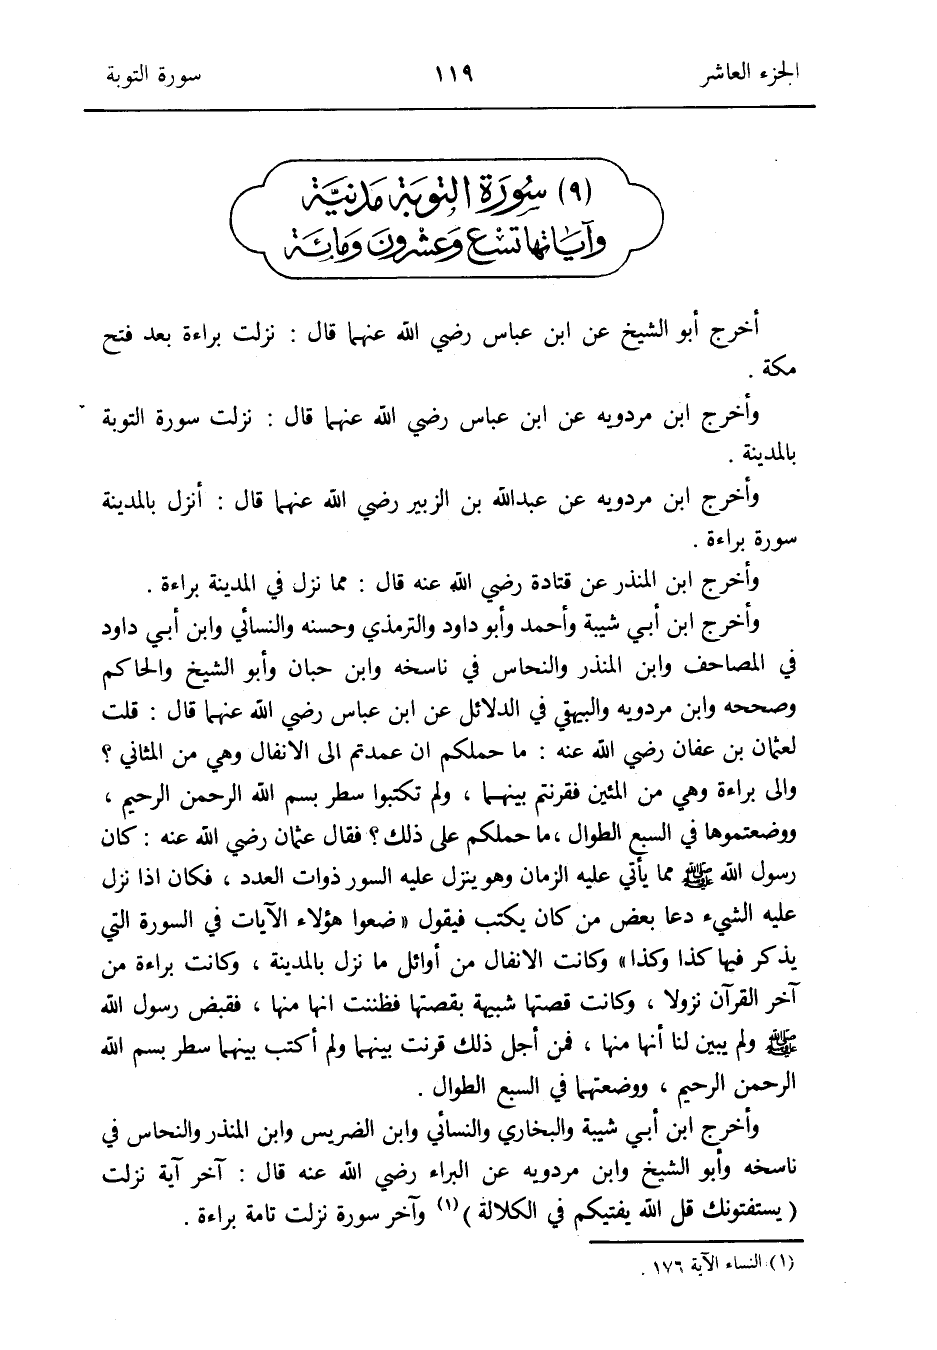 الجزء العاشر ١١٩ سورة التوبة
(٩) سورة التوبة مدنية
وآياتها تسع وعشرون ومائة
أخرج أبو الشيخ عن ابن عباس رضي الله عنهما قال : نزلت براءة بعد فتح
مكة .
وأخرج ابن مردويه عن ابن عباس رضي الله عنهما قال : نزلت سورة التوبة
بالمدينة .
وأخرج ابن مردويه عن عبدالله بن الزبير رضي الله عنهما قال : أنزل بالمدينة
سورة براءة .
وأخرج ابن المنذر عن قتادة رضي الله عنه قال : مما نزل في المدينة براءة .
وأخرج ابن أبي شيبة وأحمد وأبو داود والترمذي وحسنه والنسائي وابن أبي داود
في المصاحف وابن المنذر والنحاس في ناسخه وابن حبان وأبو الشيخ والحاكم
وصححه وابن مردويه والبيهقي في الدلائل عن ابن عباس رضي الله عنهما قال : قلت
لعثمان بن عفان رضي الله عنه : ما حملكم ان عمدتم الى الانفال وهي من المثاني ؟
والى براءة وهي من المئين فقرنتم بينهما ، ولم تكتبوا سطر بسم الله الرحمن الرحيم ،
ووضعتموها في السبع الطوال ،ما حملكم على ذلك ؟ فقال عثمان رضي الله عنه : كان
رسول الله ﷺ مما يأتي عليه الزمان وهو ينزل عليه السور ذوات العدد ، فكان اذا نزل
عليه الشيء دعا بعض من كان يكتب فيقول « ضعوا هؤلاء الآيات في السورة التي
يذكر فيها كذا وكذا » وكانت الانفال من أوائل ما نزل بالمدينة ، وكانت براءة من
آخر القرآن نزولا ، وكانت قصتها شبيهة بقصتها فظننت انها منها ، فقبض رسول الله
ﷺ ولم يبين لنا أنها منها ، فمن أجل ذلك قرنت بينهما ولم أكتب بينهما سطر بسم الله
الرحمن الرحيم ، ووضعتهما في السبع الطوال .
وأخرج ابن أبي شيبة والبخاري والنسائي وابن الضريس وابن المنذر والنحاس في
ناسخه وأبو الشيخ وابن مردويه عن البراء رضي الله عنه قال : آخر آية نزلت
( يستفتونك قل الله يفتيكم في الكلالة )(١) وآخر سورة نزلت تامة براءة .
(١) النساء الآية ١٧٦ .